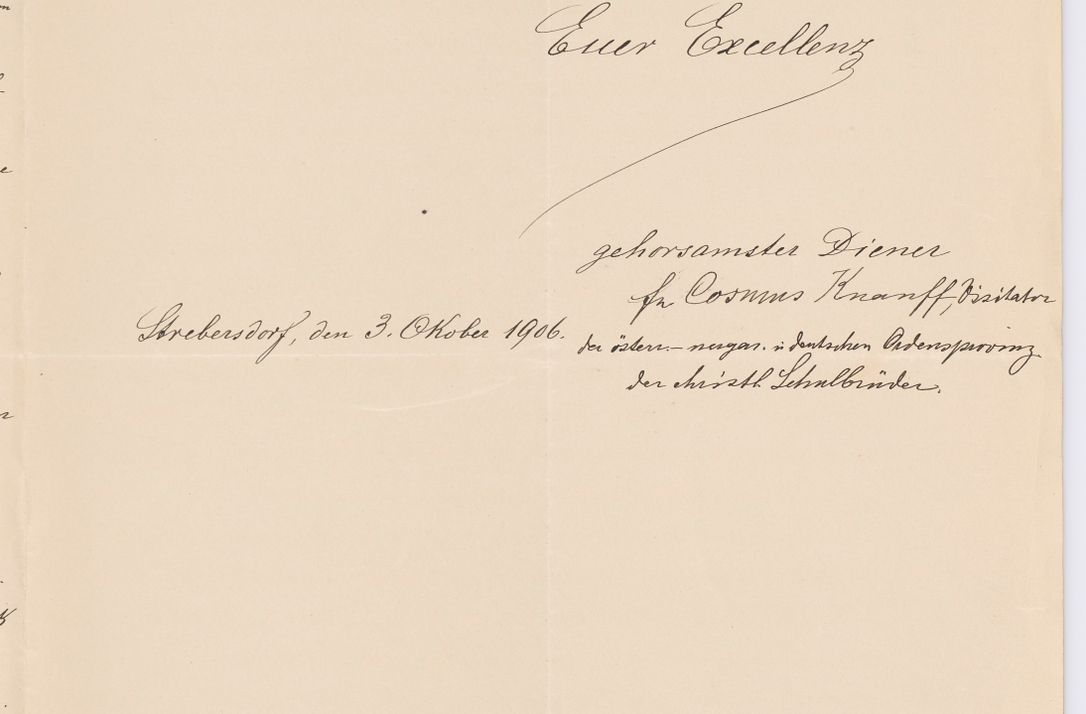 Euer Excellenz
gehorsamster Diener
fr Cosmus Knauff, Visitator
Strebersdorf, den 3. Okober 1906.
der österr.– ungar. u deutschen Ordensprovinz
der christl. Schulbrüder.